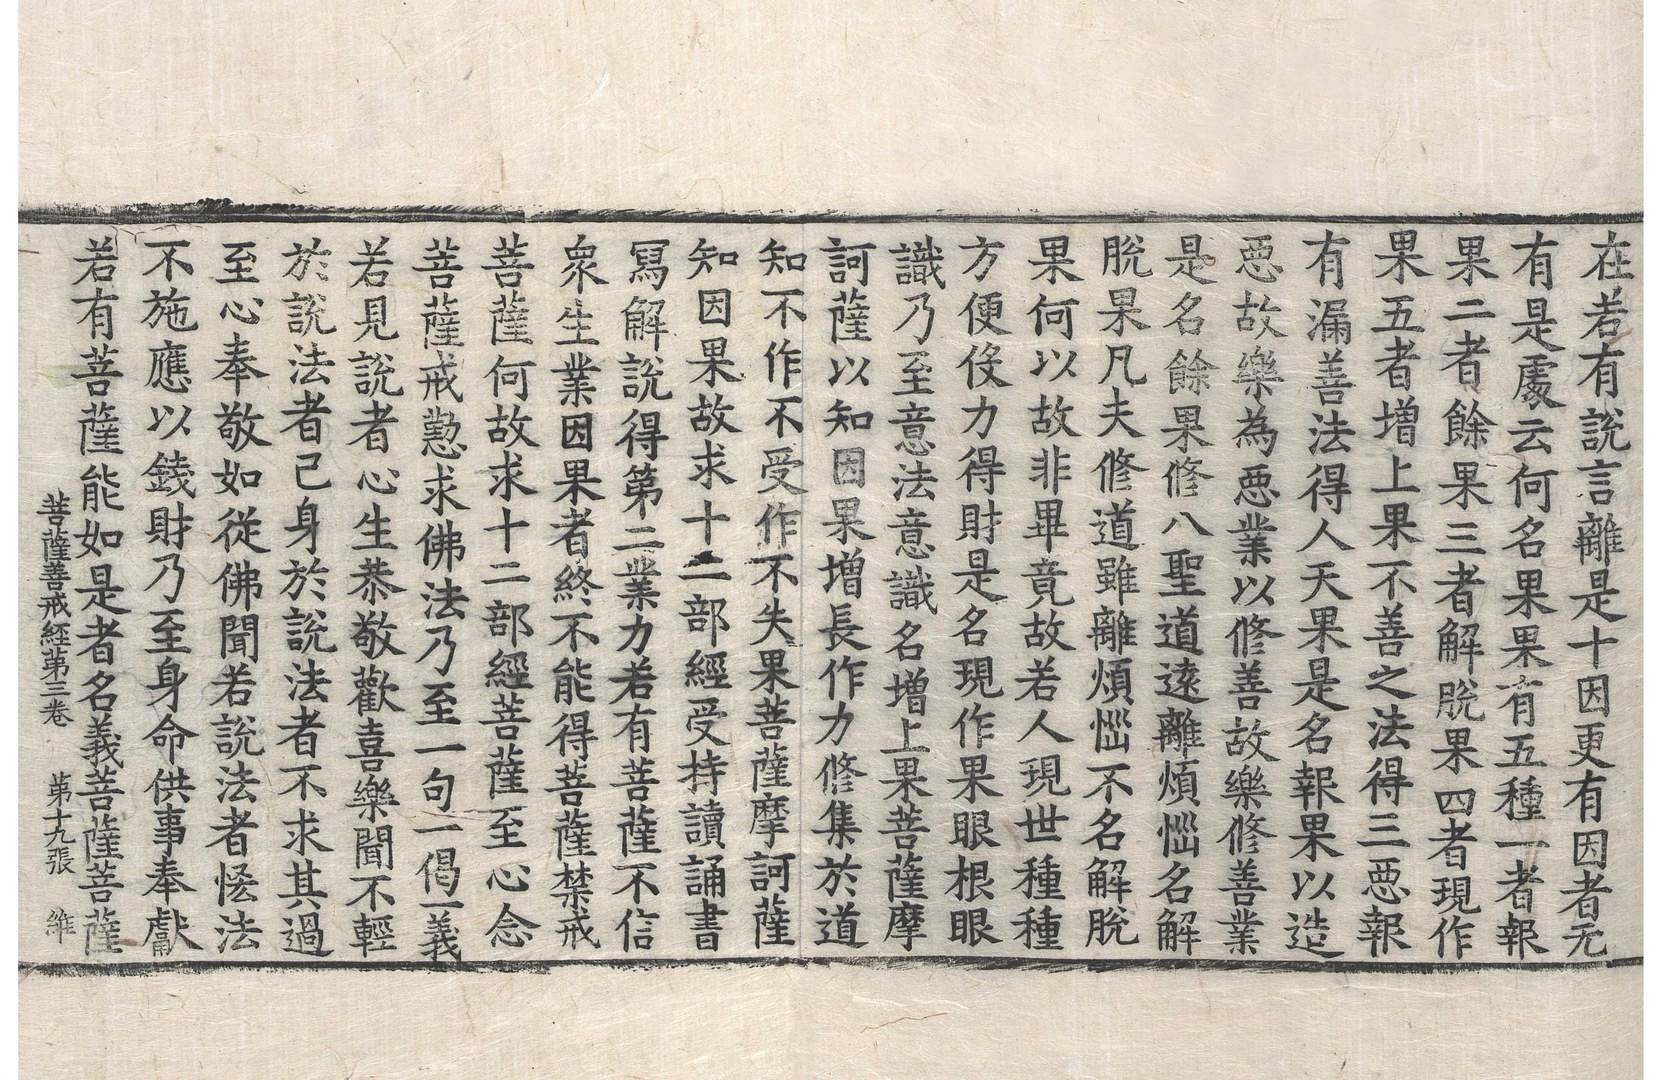 在若有說言離是十因更有因者无
有是處云何名果果有五種一者報
果二者餘果三者解脫果四者現作
果五者增上果不善之法得三惡報
有漏善法得人天果是名報果以造
惡故樂為惡業以修善故樂修善業
是名餘果修八聖道遠離煩惱名解
脫果凡夫修道雖離煩惱不名解脫
果何以故非畢竟故若人現世種種
方便伇力得財是名現作果眼根眼
識乃至意法意識名增上果菩薩摩
訶薩以知因果增長作力修集於道
知不作不受作不失果菩薩摩訶薩
知因果故求十二部經受持讀誦書
寫解說得第二業力若有菩薩不信
眾生業因果者終不能得菩薩禁戒
菩薩何故求十二部經菩薩至心念
菩薩戒懃求佛法乃至一句一偈一義
若見說者心生恭敬歡喜樂聞不輕
於說法者己身於說法者不求其過
至心奉敬如從佛聞若說法者恡法
不施應以錢財乃至身命供事奉獻
若有菩薩能如是者名義菩薩菩薩
菩薩善戒經第三卷 第十九張 維